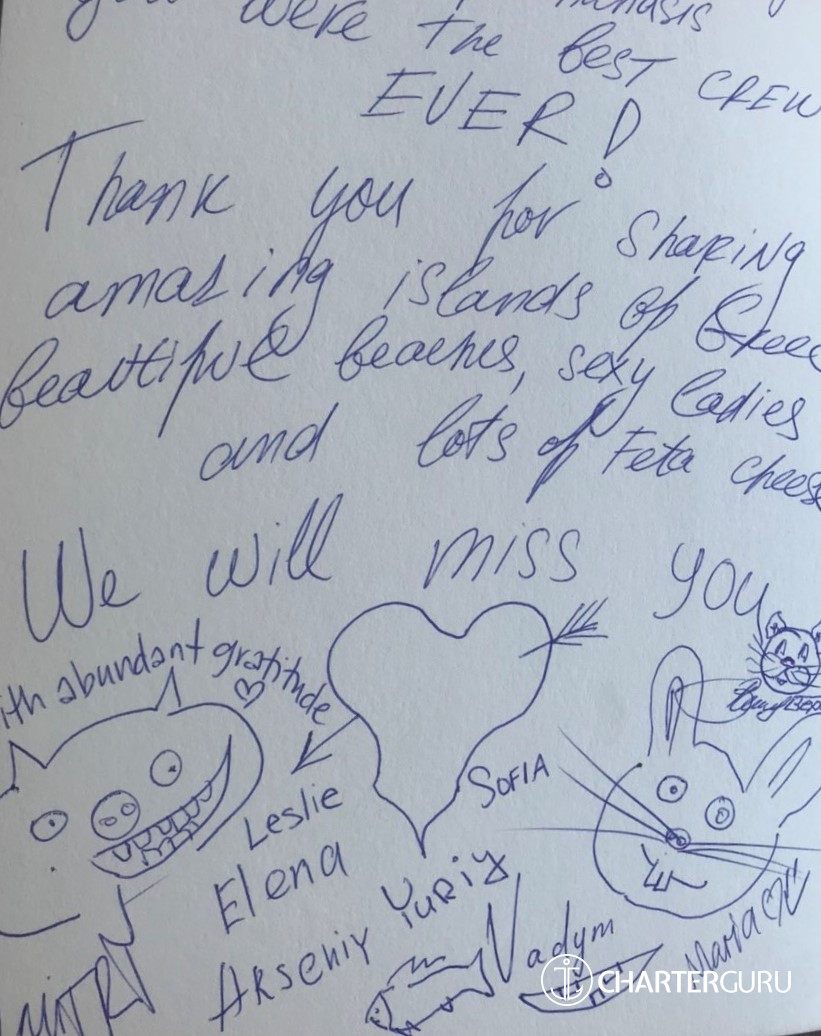 you were the best CREW
EVER!
Thank you for sharing
amazing islands of Greec
beautiful beaches, sexy ladies
and lots of Feta chees
We will miss you
ith abundant gratitude
Leslie
SOFIA
Elena
Yuriy
Arseniy
Vadym
Maria
MITRY
CHARTERGURU